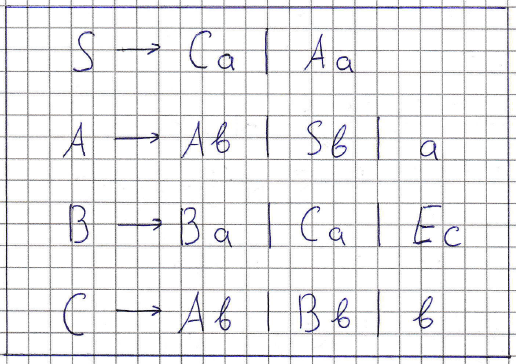 S → Ca | Aa
A → Ab | Sb | a
B → Ba | Ca | Ec
C → Ab | Bb | b